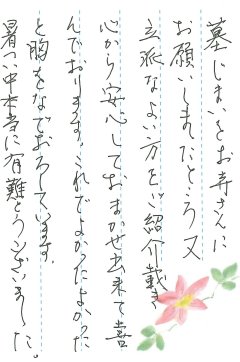 墓じまいをお寺さんに
お願いしましたところ又
立派なよい方をご紹介戴き
心から安心しておまかせ出来て喜
んでおります。これでよかったよかった
と胸をなでおろしています。
暑い中本当に有難とうございました。